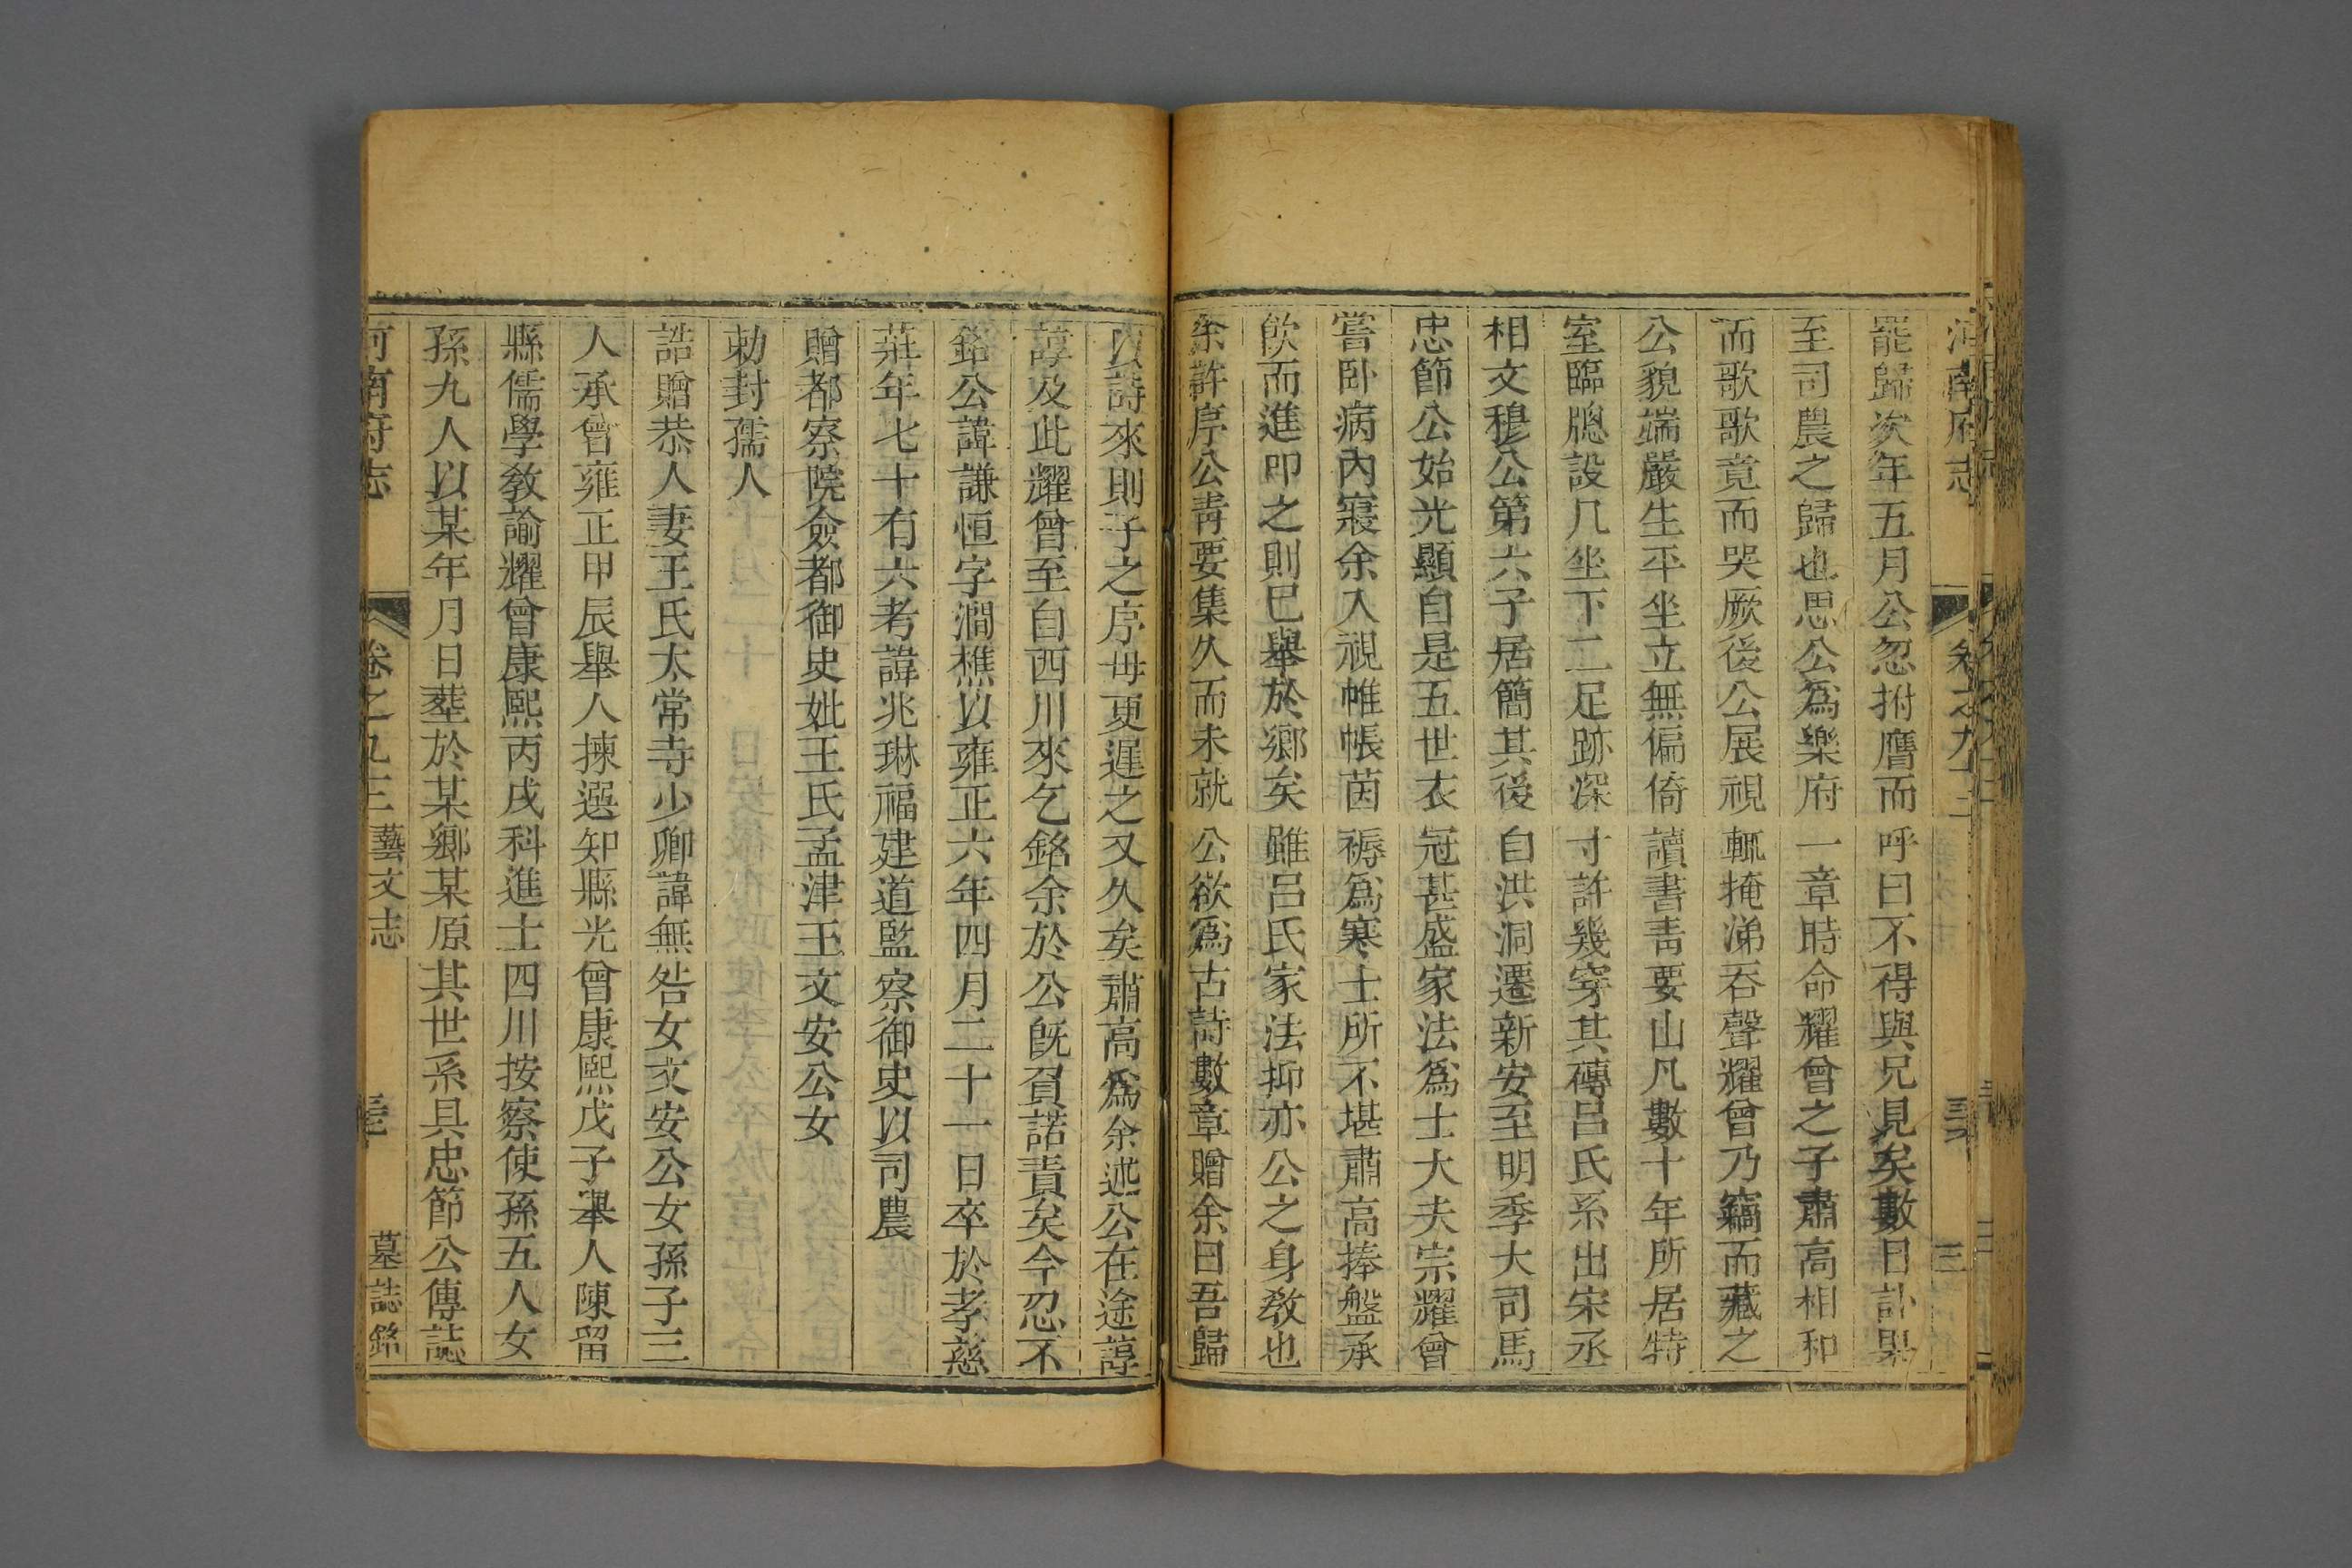 罷歸次年五月公忽拊膺而呼曰不得與兄見矣數日訃果
至司農之歸也思公爲樂府一章時命耀曾之子肅高相和
而歌歌竟而哭厥後公展視輒掩涕吞聲耀曾乃竊而藏之
公貌端嚴生平坐立無偏倚讀書靑要山凡數十年所居特
室臨牕設几坐下二足跡深寸許幾穿其磚呂氏系出宋丞
相文穆公第六子居簡其後自洪洞遷新安至明季大司馬
忠節公始光顯自是五世衣冠甚盛家法爲士大夫宗耀曾
嘗臥病內寢余入視帷帳茵褥爲寒士所不堪肅高捧盤承
飮而進叩之則已舉於鄉矣雖呂氏家法抑亦公之身敎也
余許序公靑要集久而未就公欲爲古詩數章贈余曰吾歸
以詩來則子之序毋更遲之又久矣肅高爲余述公在途諄
諄及此耀曾至自西川來乞銘余於公旣負諾責矣今忍不
銘公諱謙恒字澗樵以雍正六年四月二十一日卒於孝慈
莊年七十有六考諱兆琳福建道監察御史以司農
贈都察院僉都御史妣王氏孟津王文安公女
勅封孺人
誥贈恭人妻王氏太常寺少卿諱無咎女文安公女孫子三
人承曾雍正甲辰舉人揀選知縣光曾康熙戊子舉人陳留
縣儒學敎諭耀曾康熙丙戌科進士四川按察使孫五人女
孫九人以某年月日塟於某鄉某原其世系具忠節公傳誌
河南府志 卷之九十二 藝文志 墓誌銘